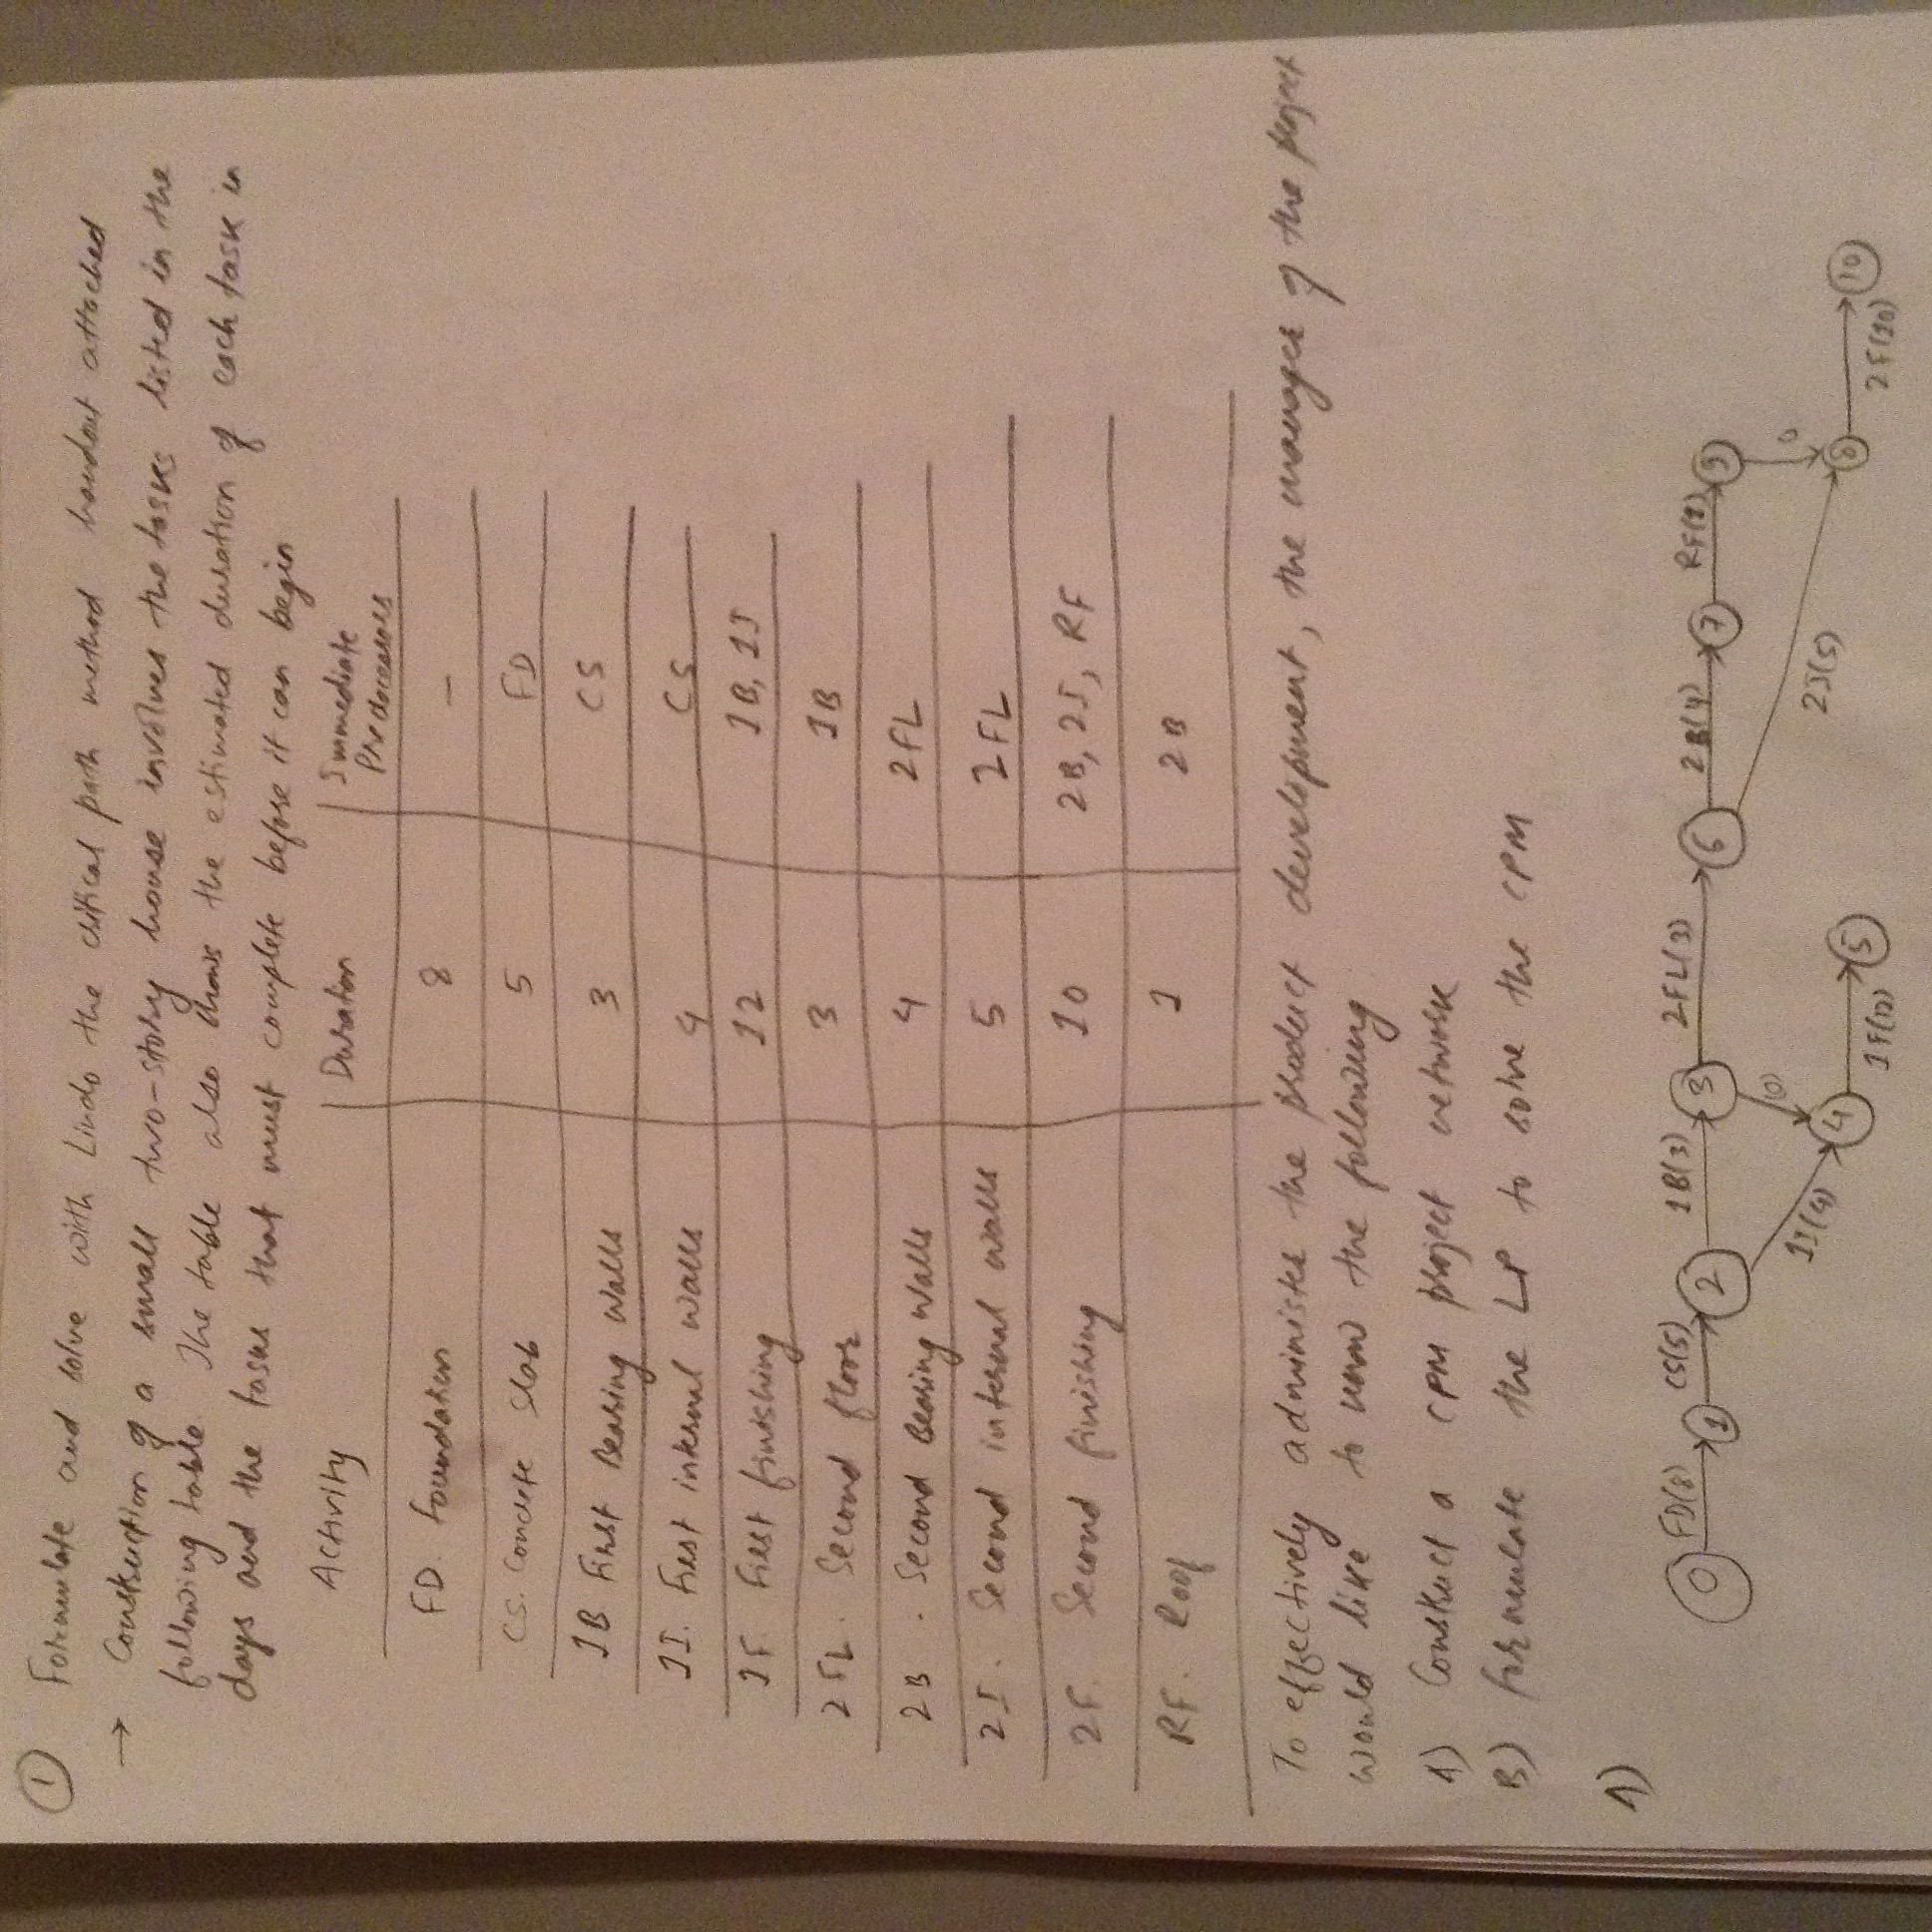 1 Formulate and solve with Lindo the critical path method handout attached
→ Construction of a small two-story house involves the tasks listed in the
following table. The table also shows the estimated duration of each task in
days and the tasks that must complete before it can begin
Activity Duration Immediate
Predocessors
FD. foundation 8 —
CS. Concrete Slab 5 FD
1B First Bearing Walls 3 CS
1I. First internal walls 4 CS
1F. First finishing 12 1B, 1I
2FL. Second floor 3 1B
2B . Second Bearing Walls 4 2FL
2I. Second internal walls 5 2FL
2F. Second finishing 10 2B, 2I, RF
RF. Roof 1 2B
To effectively administer the product development, the manager of the project
would like to know the following
A) Construct a CPM project network
B) formulate the LP to solve the CPM
A)
FD(8) CS(5) 1B(3) 2FL(3) 2B(4) RF(1)
0 1 2 3 6 7 9
(0) 0
1I(4) 2I(5)
4 5 8 10
1F(12) 2F(10)